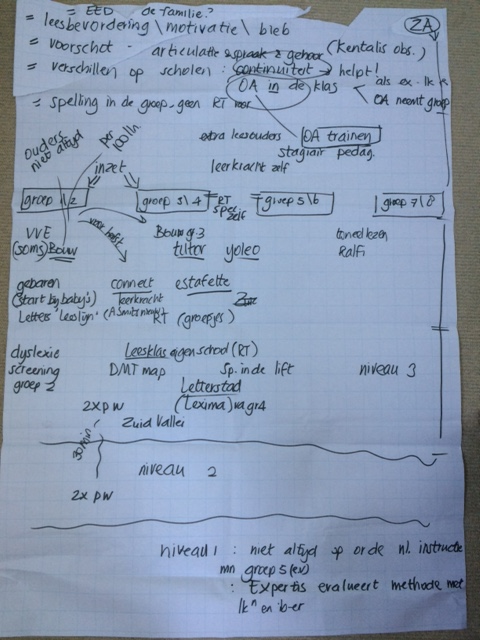 = EED de familie?
= leesbevordering \ motivatie \ bieb
ZA
= voorschot - articulatie & spraak & gehoor (Kentalis obs.)
= verschillen op scholen : continuïteit → helpt!
OA in de klas < als ex-lk e
OA neemt groep
= spelling in de groep - geen RT voor
ouders niet altijd
per school
extra leesouders
OA trainen
stagiair pedag.
inzet
leerkracht zelf
groep 1\2
groep 3\4
RT
spel zelf
groep 5\6
groep 7\8
VVE
(soms) Bouw
voor heft
Bouw gr.3
tutor yoleo
toneellezen
Ralfi
gebaren
(start bij baby's)
Letters 'leeslijn'
connect estafette
leerkracht
RT (groepjes)
dyslexie
screening
groep 2
Leesklas eigen school (RT)
DMT map Sp. in de lift
niveau 3
Letterstad
(Lexima) va gr4
2x pw
Zuid Vallei
30 min
niveau 2
2x pw
niveau 1 : niet altijd op orde nl. instructie
mn groep 5 (ev)
: Expertis evalueert methode met
lkⁿ en ib-er